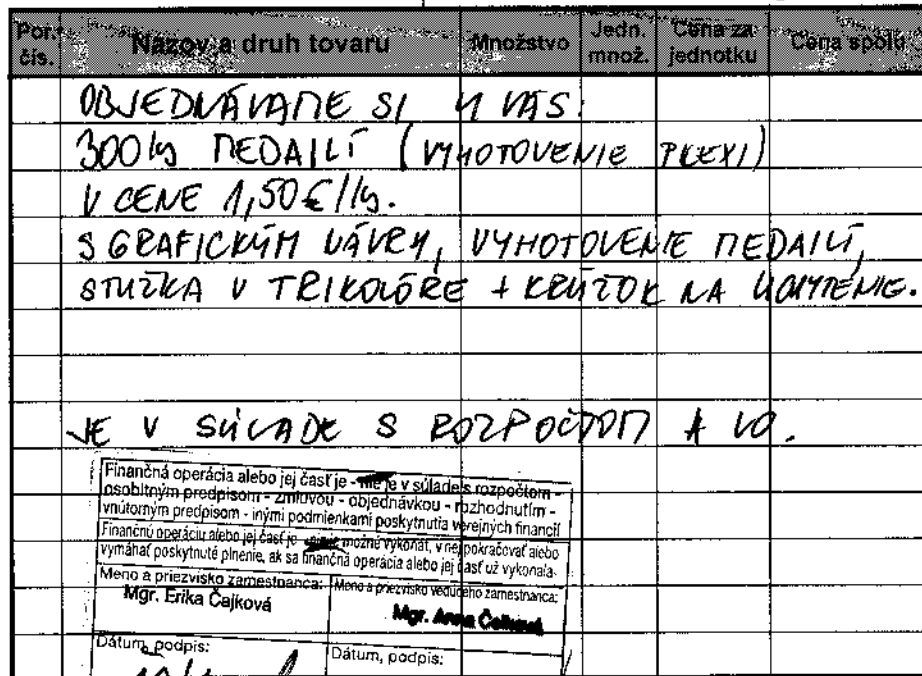 Por. čís. Názov a druh tovaru Množstvo Jedn. množ. Cena za jednotku Cena spolu
OBJEDNÁVAME SI U VÁS:
300 ks MEDAILÍ (VYHOTOVENIE PLEXI)
V CENE 1,50 € / ks.
S GRAFICKÝM NÁVRH, VYHOTOVENIE MEDAILÍ,
STUŽKA V TRIKOLÓRE + KRÚŽOK NA
JE V SÚLADE S ROZPOČTOM A VO.
Finančná operácia alebo jej časť je - nie je v súlade s rozpočtom -
osobitným predpisom - zmluvou - objednávkou - rozhodnutím -
vnútorným predpisom - inými podmienkami poskytnutia verejných financií
Finančnú operáciu alebo jej časť je možné vykonať, v nej pokračovať alebo
vymáhať poskytnuté plnenie, ak sa finančná operácia alebo jej časť už vykonala.
Meno a priezvisko zamestnanca: Meno a priezvisko vedúceho zamestnanca:
Mgr. Erika Čajková Mgr. Anna
Dátum, podpis: Dátum, podpis: